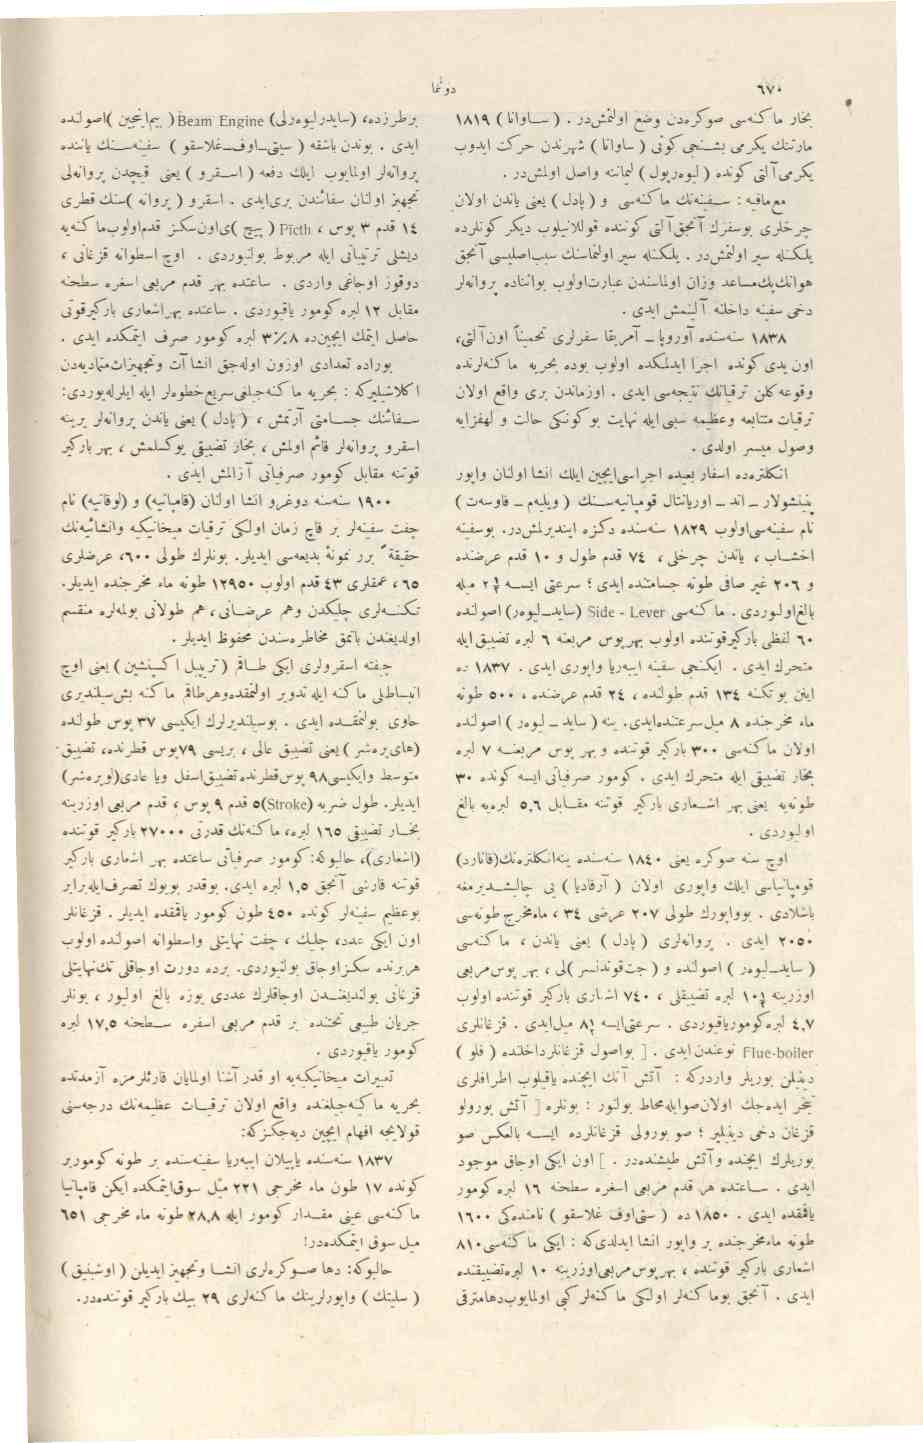 ٦٧٠
دوننما
بخار ماكنه‌سى صوكره‌دن وضع اولنمشدر . ( ساوانا ) ١٨١٩
مارتنك يكرمى بشنجى كونى ( ساوانا ) شهرندن حركت ايدوب
يكرمى آلتى كونده ( ليوه‌رپول ) ليماننه واصل اولمشدر .
مع‌مافيه : سفينه‌نك ماكنه‌سى و ( پادل ) يعنى ياندن اولان
چرخلرى بوسفرك آنجق آلتى كوننده قوللانيلوب ديكر كونلرده
يلكنله سير اولنمشدر . يلكنله سير اولنماسنك سبب‌اصليسى آنجق
هوانك‌پك‌مساعد وزان اولماسندن عبارت‌اولوب بواثناده پروانه‌لر
دخى سفينه داخلنه آلنمش ايدى .
١٨٣٨ سنه‌سنده آوروپا ـ آمريقا سفرلرى تخميناً اون‌آلتى،
اون يدى كونده اجرا ايدلمكده اولوب بوده بحريه ماكنه‌لرنده
وقوعه كلن ترقياتك نتيجه‌سى ايدى . اوزماندن برى واقع اولان
ترقيات متتابعه وعظيمه سببى ايله نهايت بو كونكى حالت و لهفزايه
وصول ميسر اولدى .
انكلتره‌ده اسفار بعيده اجراسى‌ايچين ايلك انشا اولنان واپور
پنينشولار ـ اند ـ اوريانتال قومپانيه‌سنك ( ويليه‌م ـ فاوسه‌ت )
نام سفينه‌سى‌اولوب ١٨٢٩ سنه‌سنده دكزه اينديرلمش‌در. بوسفينه
اخشاب ، ياندن چرخلى ، ٧٤ قدم طول و ١٠ قدم عرضنده
و ٢٠٦ غير صافى طونه جسامتنده ايدى ؛ سرعتى ايسه ٢½ ميله
بالغ‌اوليوردى . ماكنه‌سى Side - Lever (سايد_ليوه‌ر) اصولنده
٦٠ لفظى باركيرقوتنده اولوب بهرپوس مربعنه ٦ ليره تضييق‌ايله
متحرك ايدى . ايكنجى سفينه ايبه‌ريا واپورى ايدى . ١٨٣٧ ده
ايقن بو تكنه ١٣٤ قدم طولنده ، ٢٤ قدم عرضنده ، ٥٠٠ طونه
ماء مخرجنده ٨ ميل‌سرعتنده‌ايدى. ينه ( سايد ـ ليوه‌ر ) اصولنده
اولان ماكنه‌سى ٣٠٠ باركير قوتنده و بهر پوس مربعنه ٧ ليره
بخار تضييقى ايله متحرك ايدى . كومور صرفياتى ايسه كونده ٣٠
طونه‌يه يعنى بهر اشعارى باركير قوتنه مقابل ٥,٦ ليره‌يه بالغ
اوليوردى .
اوچ سنه صوكره يعنى ١٨٤٠ سنه‌سنده ينه‌انكلتره‌نك(قانارد)
قومپانياسى ايلك واپورى اولان ( آرقاديا ) يى چاليشديرمغه
باشلادى . بوواپورك طولى ٢٠٧ عرضى ٣٤ ، ماءمخرج طونه‌سى
٢٠٥٠ ايدى . پروانه‌لرى ( پادل ) يعنى ياندن ، ماكنه‌سى
( سايد_ليوه‌ر ) اصولنده و ( جت‌قوندنسر )لى ، بهر پوس‌مربعى
اوزرينه ١٠½ ليره تضييقلى ، ٧٤٠ اشارى باركير قوتنده اولوب
٤,٧ ليره‌كومورياقيوردى . سرعتى‌ايسه ٨½ ميل‌ايدى . قزغانلرى
Flue-boiler نوعندن ايدى . ] بواصول قزغانلرداخلنده ( فلو )
دينيلن بوريلر واردركه : آتش آنك ايچنده ياقيلوب اطرافلرى
تبخر ايده‌جك اولان‌صوايله‌محاط بولنور : بونلره [ آتش بورولو
قزغان دخى دينيلير ؛ صو بورولى قزغانلرده ايسه بالعكس صو
بوريلرك ايچنده وآتش طيشنده‌در . ] اون ايكى اوجاق موجود
ايدى . ساعتده هر قدم مربعى اسغره سطحنه ١٦ ليره كومور
ياقمقده ايدى . ١٨٥٠ ده ( ستى‌اوف غلاسقو ) نامنده‌كى ١٦٠٠
طونه ماءمخرجنده بر واپور انشا ايدلدى‌كه : ايكى ماكنه‌سى٨١٠
اشعارى باركير قوتنده ، بهرپوس‌مربعى‌اوزرينه ١٠ ليره‌تضييقنده
ايدى . آنجق بوماكنه‌لر اولكى ماكنه‌لر كبى اولمايوب‌دهامترقى
برطرزده، (سايدرليوه‌رلى) Beam Engine( بيم‌اينجين )اصولنده
ايدى . بوندن باشقه ( سيتى_اوف_غلاسقو ) سفينه‌سنك ياننده
پروانه‌لر اولمايوب ايلك دفعه ( اسقرو ) يعنى قيچدن پروانه‌لى
تجهيز اولنان سفائندن برى‌ايدى . اسقرو ( پروانه )سنك قطرى
١٤ قدم ٣ پوس ، Picth ( پيچ )ى‌اون‌سكزقدم‌اولوب‌ماكنه‌يه
ديشلى ترتيباتى ايله مربوط بولنيوردى . اوچ اسطوانه قزغانى ،
دوقوز اوجاغى واردى . ساعتده بهر قدم مربعى اسغره سطحنه
مقابل ١٢ ليره كومور ياقيوردى . ساعتده بهراشعارى باركيرقوتى
حاصل ايتمك ايچين‌ده ٣٪٨ ليره كومور صرف ايتمكده ايدى .
بوراده تعدادى اوزون اوله‌جق انشاآت وتجهيزات‌متماديه‌دن
اكلاشيليركه : بحريه ماكنه‌جيلغى‌سريع‌خطوه‌لر ايله ايلرله‌يوردى:
سفائنك جسامتى آرتمش ، ( پادل ) يعنى ياندن پروانه‌لر يرينه
اسقرو پروانه‌لر قائم اولمش ، بخار تضييقى يوكسلمش ، بهر باركير
قوتنه مقابل كومور صرفياتى آزالمش ايدى .
١٩٠٠ سنه‌سنه دوغرو انشا اولنان (قامپانيه) و (لوقانيه) نام
چفت سفينه‌لر بر قاچ زمان اولكى ترقيات ميخانيكيه وانشائيه‌نك
حقيقةً برر نمونه بديعه‌سى ايديلر. بونلرك طولى ٦٠٠، عرضلرى
٦٥ ، عمقلرى ٤٣ قدم اولوب ١٢٩٥٠ طونه ماء مخرجنده ايديلر.
تكنه‌لرى چليكدن وهم عرضانى، هم طولانى بولمه‌لره منقسم
اولديغندن باتمق مخاطره‌سندن محفوظ ايديلر .
چفته اسقرولرى ايكى طاقم ( تريپل اكسپنشين ) يعنى اوچ
انبساطلى ماكنه ايله تدوير اولنمقده‌وهرطاقم ماكنه بش‌سيليندرى
حاوى بولنمقده ايدى . بوسيلندرلرك ايكيسى ٣٧ پوس طولنده
(هاى‌پره‌شر) يعنى تضييق عالى ، بريسى ٧٩پوس قطرنده، تضييق
متوسط وايكيسى٩٨ پوس قطرنده‌تضييق‌اسفل ويا عادى(لوپره‌شر)
ايديلر. طول ضربه (Stroke)٥ قدم ٩ پوس ، قدم مربعى اوزرينه
بخار تضييقى ١٦٥ ليره، ماكنه‌نك قدرتى ٢٧٠٠٠ باركير قوتنده
(اشعارى)، حالبوكه: كومور صرفياتى ساعتده بهر اشعارى باركير
قوتنه قارشى آنجق ١,٥ ليره ايدى. بوقدر بويوك تصرف‌ايله‌برابر
بوعظيم سفينه‌لر كونده ٤٥٠ طون كومور ياقمقده ايديلر. قزغانلر
اون ايكى عدد، چليك ، چفت نهايتلى واسطوانه اصولنده اولوب
هربرنده سكزاوجاق بولنيوردى. برده دورت اوجاقلى تك‌نهايتلى
قزغانى بولنديغندن اوجاقلرك عددى يوزه بالغ اوليور ، بونلر
جريان طبيعى تحتنده بر قدم مربعى اسغره سطحنه ١٧,٥ ليره
كومور ياقيوردى .
تعبيرات ميخانيكيه‌يه او قدر آشنا اولمايان قارئلرمزه آزمدتده
بحريه ماكنه‌جيلغنده واقع اولان ترقيات عظيمه‌نك درجه‌سنى
قولايجه افهام ايچين ديه‌جكزكه:
١٨٣٧ سنه‌سنده ياپيلان ايبه‌ريا سفينه‌سنده بر طونه كوموربر
كونده ١٧ طون ماء مخرجى ٢٢١ ميل سوق‌ايتمكده ايكن قامپانيا
ماكنه‌سى عينى مقدار كومور ايله ٢٨,٨ طونه ماء مخرجى ٦٥١
ميل سوق ايتمكده‌در!
حالبوكه: دها صوكره‌لرى انشا وتجهيز ايديلن ( اوشينيق )
( سلتيك ) واپورلرينك ماكنه‌لرى ٢٩ بيك باركير قوتنده‌در.